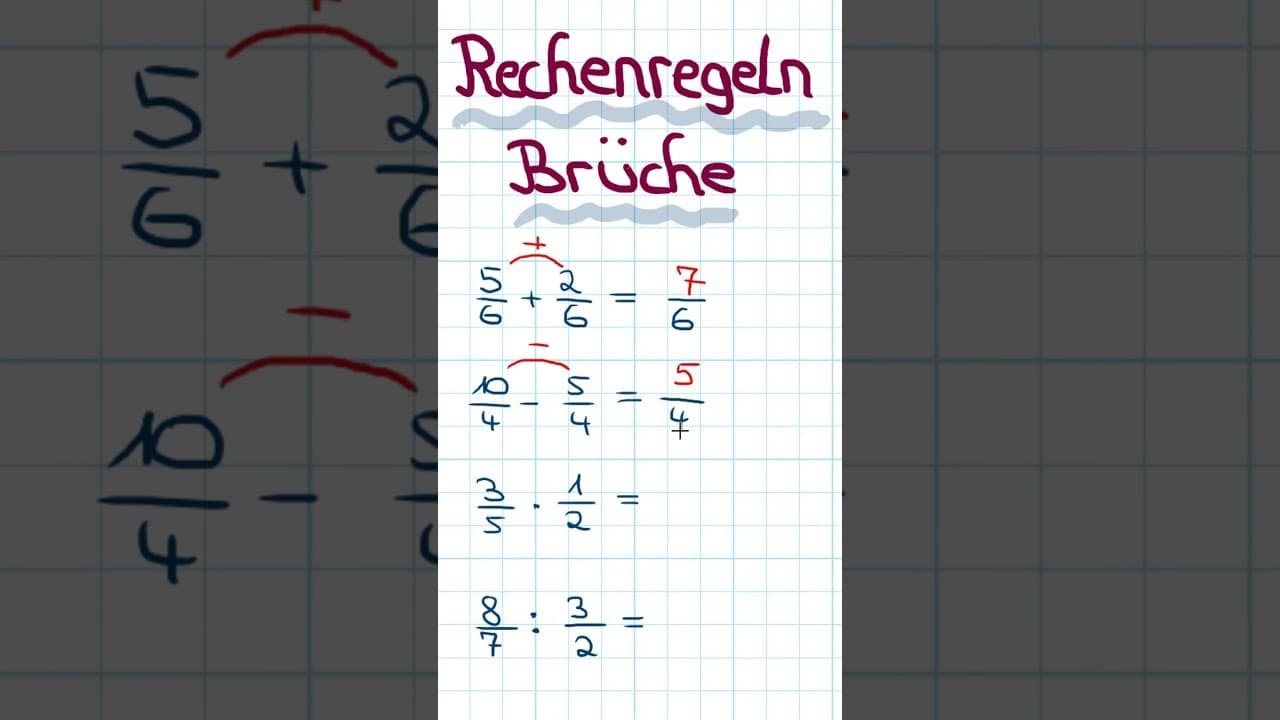 Rechenregeln
Brüche
5/6 + 2/6 = 7/6
+
10/4 - 5/4 = 5/4
-
3/5 · 1/2 =
8/7 : 3/2 =